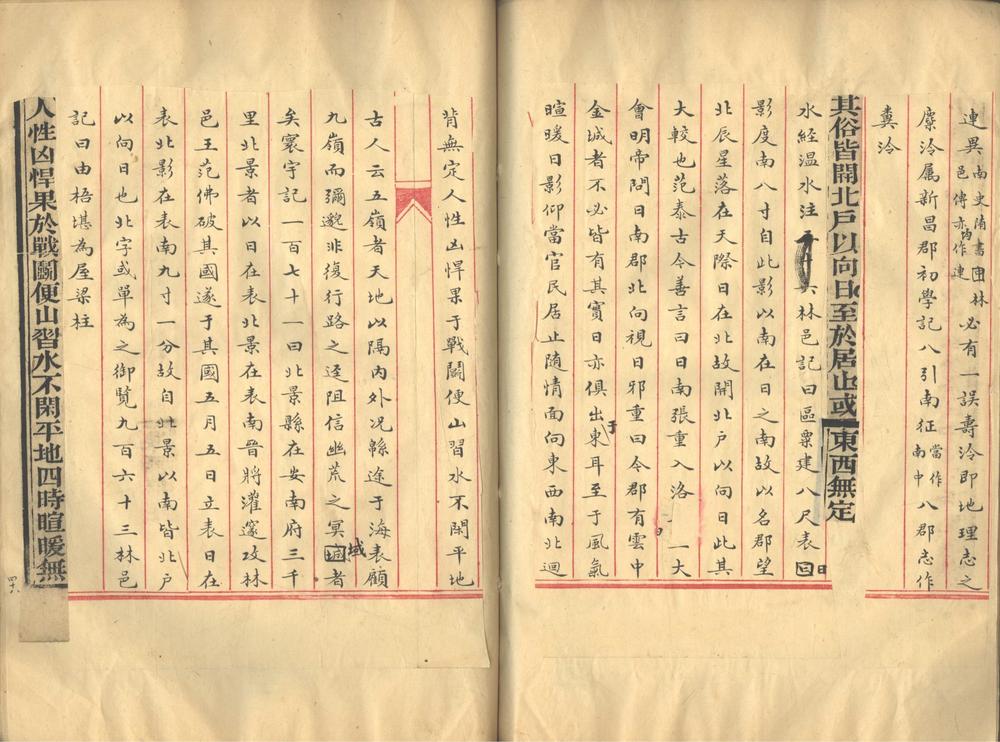 連異南史隋書林邑傳亦內作連必有一誤壽泠即地理志之
麋泠屬新昌郡初學記八引南征當作南中八郡志作
糞泠
其俗皆開北戶以向日至於居止或東西無定
水經溫水注 林邑記曰區粟建八尺表日
影度南八寸自此影以南在日之南故以名郡望
北辰星落在天際日在北故開北戶以向日此其
大較也范泰古今善言曰日南張重入洛 一大
會明帝問日南郡北向視日邪重曰今郡有雲中
金城者不必皆有其實日亦俱出于東耳至于風氣
暄暖日影仰當官民居止隨情面向東西南北迴
背無定人性凶悍果于戰鬬便山習水不閑平地
古人云五嶺者天地以隔內外况緜途于海表顧
九嶺而彌邈非復行路之逕阻信幽荒之冥域者
矣寰宇記一百七十一曰北景縣在安南府三千
里北景者以日在表北景在表南晉將灌邃攻林
邑王范佛破其國遂于其國五月五日立表日在
表北影在表南九寸一分故自北景以南皆北戶
以向日也北字或單為之御覽九百六十三林邑
記曰由梧堪為屋梁柱
人性凶悍果於戰鬬便山習水不閑平地四時暄暖無
四八